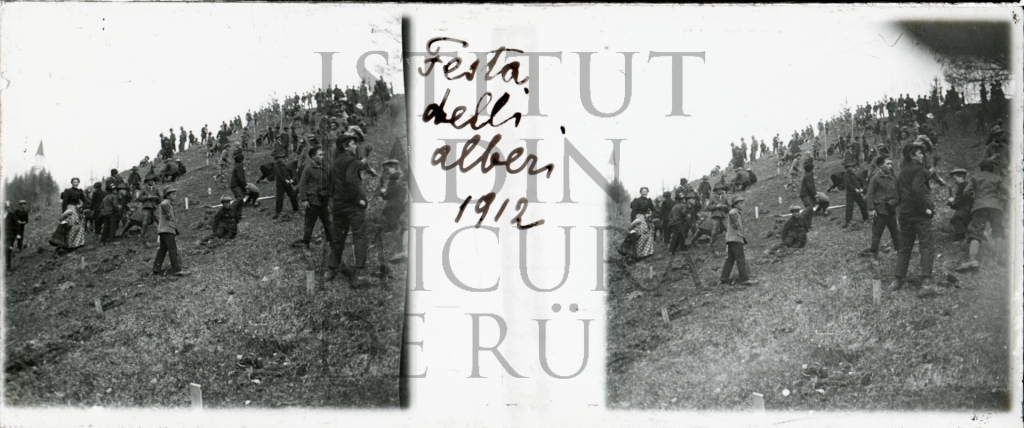 Festa
delli
alberi
1912
ISTITUT
LADIN
MICURÀ
DE RÜ